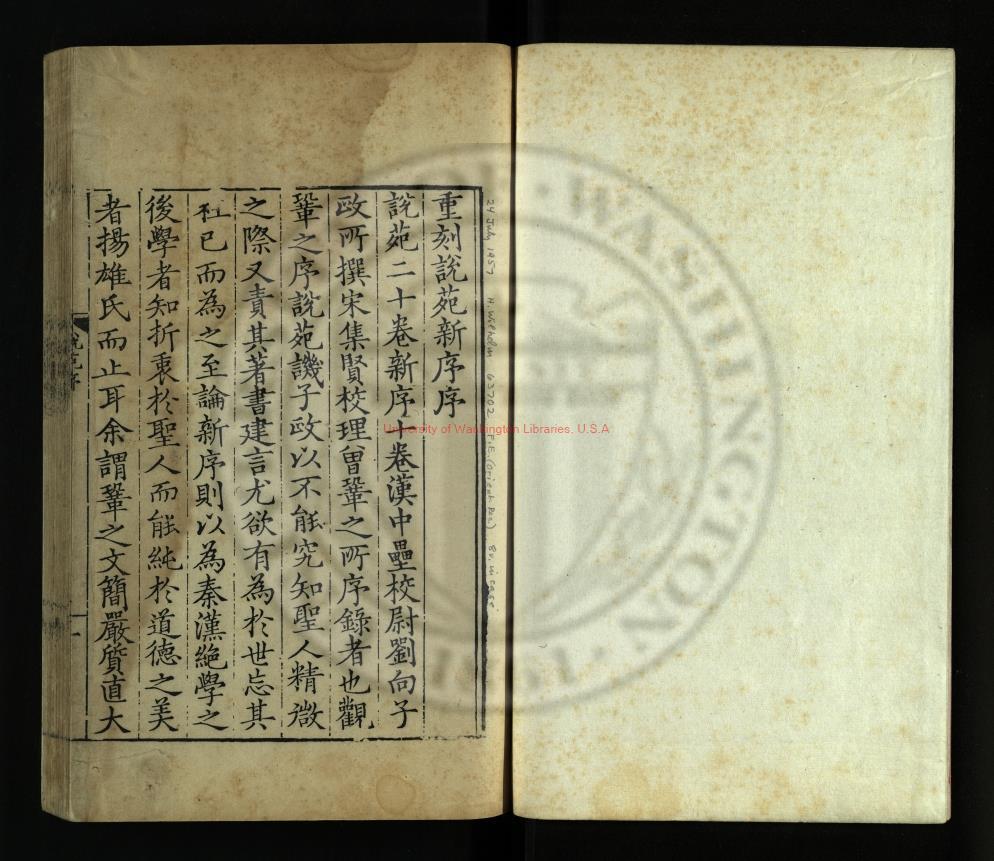 重刻說苑新序序
說苑二十卷新序十卷漢中壘校尉劉向子
政所撰宋集賢校理曾鞏之所序錄者也觀
鞏之序說苑譏子政以不能究知聖人精微
之際又責其著書建言尤欲有為於世忘其
枉已而為之至論新序則以為秦漢絕學之
後學者知折衷於聖人而能純於道德之美
者揚雄氏而止耳余謂鞏之文簡嚴質直大
說苑序
一
24 July 1957 H. Wilhelm 63702 F.E. (Orient. Per.) 8v. in case
University of Washington Libraries, U.S.A
WASHINGTON